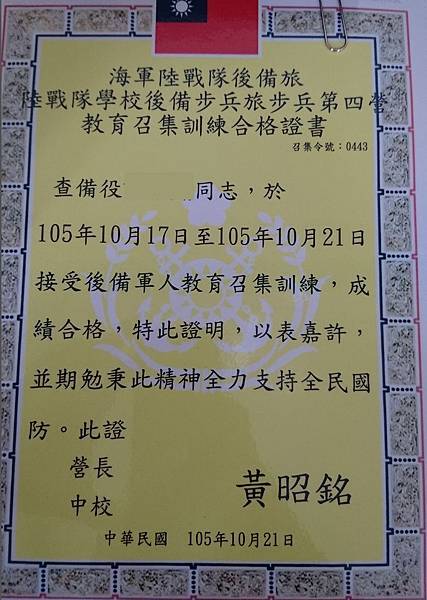 海軍陸戰隊後備旅
陸戰隊學校後備步兵旅步兵第四營
教育召集訓練合格證書
召集令號：0443
查備役 同志，於
105年10月17日至105年10月21日
接受後備軍人教育召集訓練，成
績合格，特此證明，以表嘉許，
並期勉秉此精神全力支持全民國
防。此證
營長
中校
黃昭銘
中華民國 105年10月21日